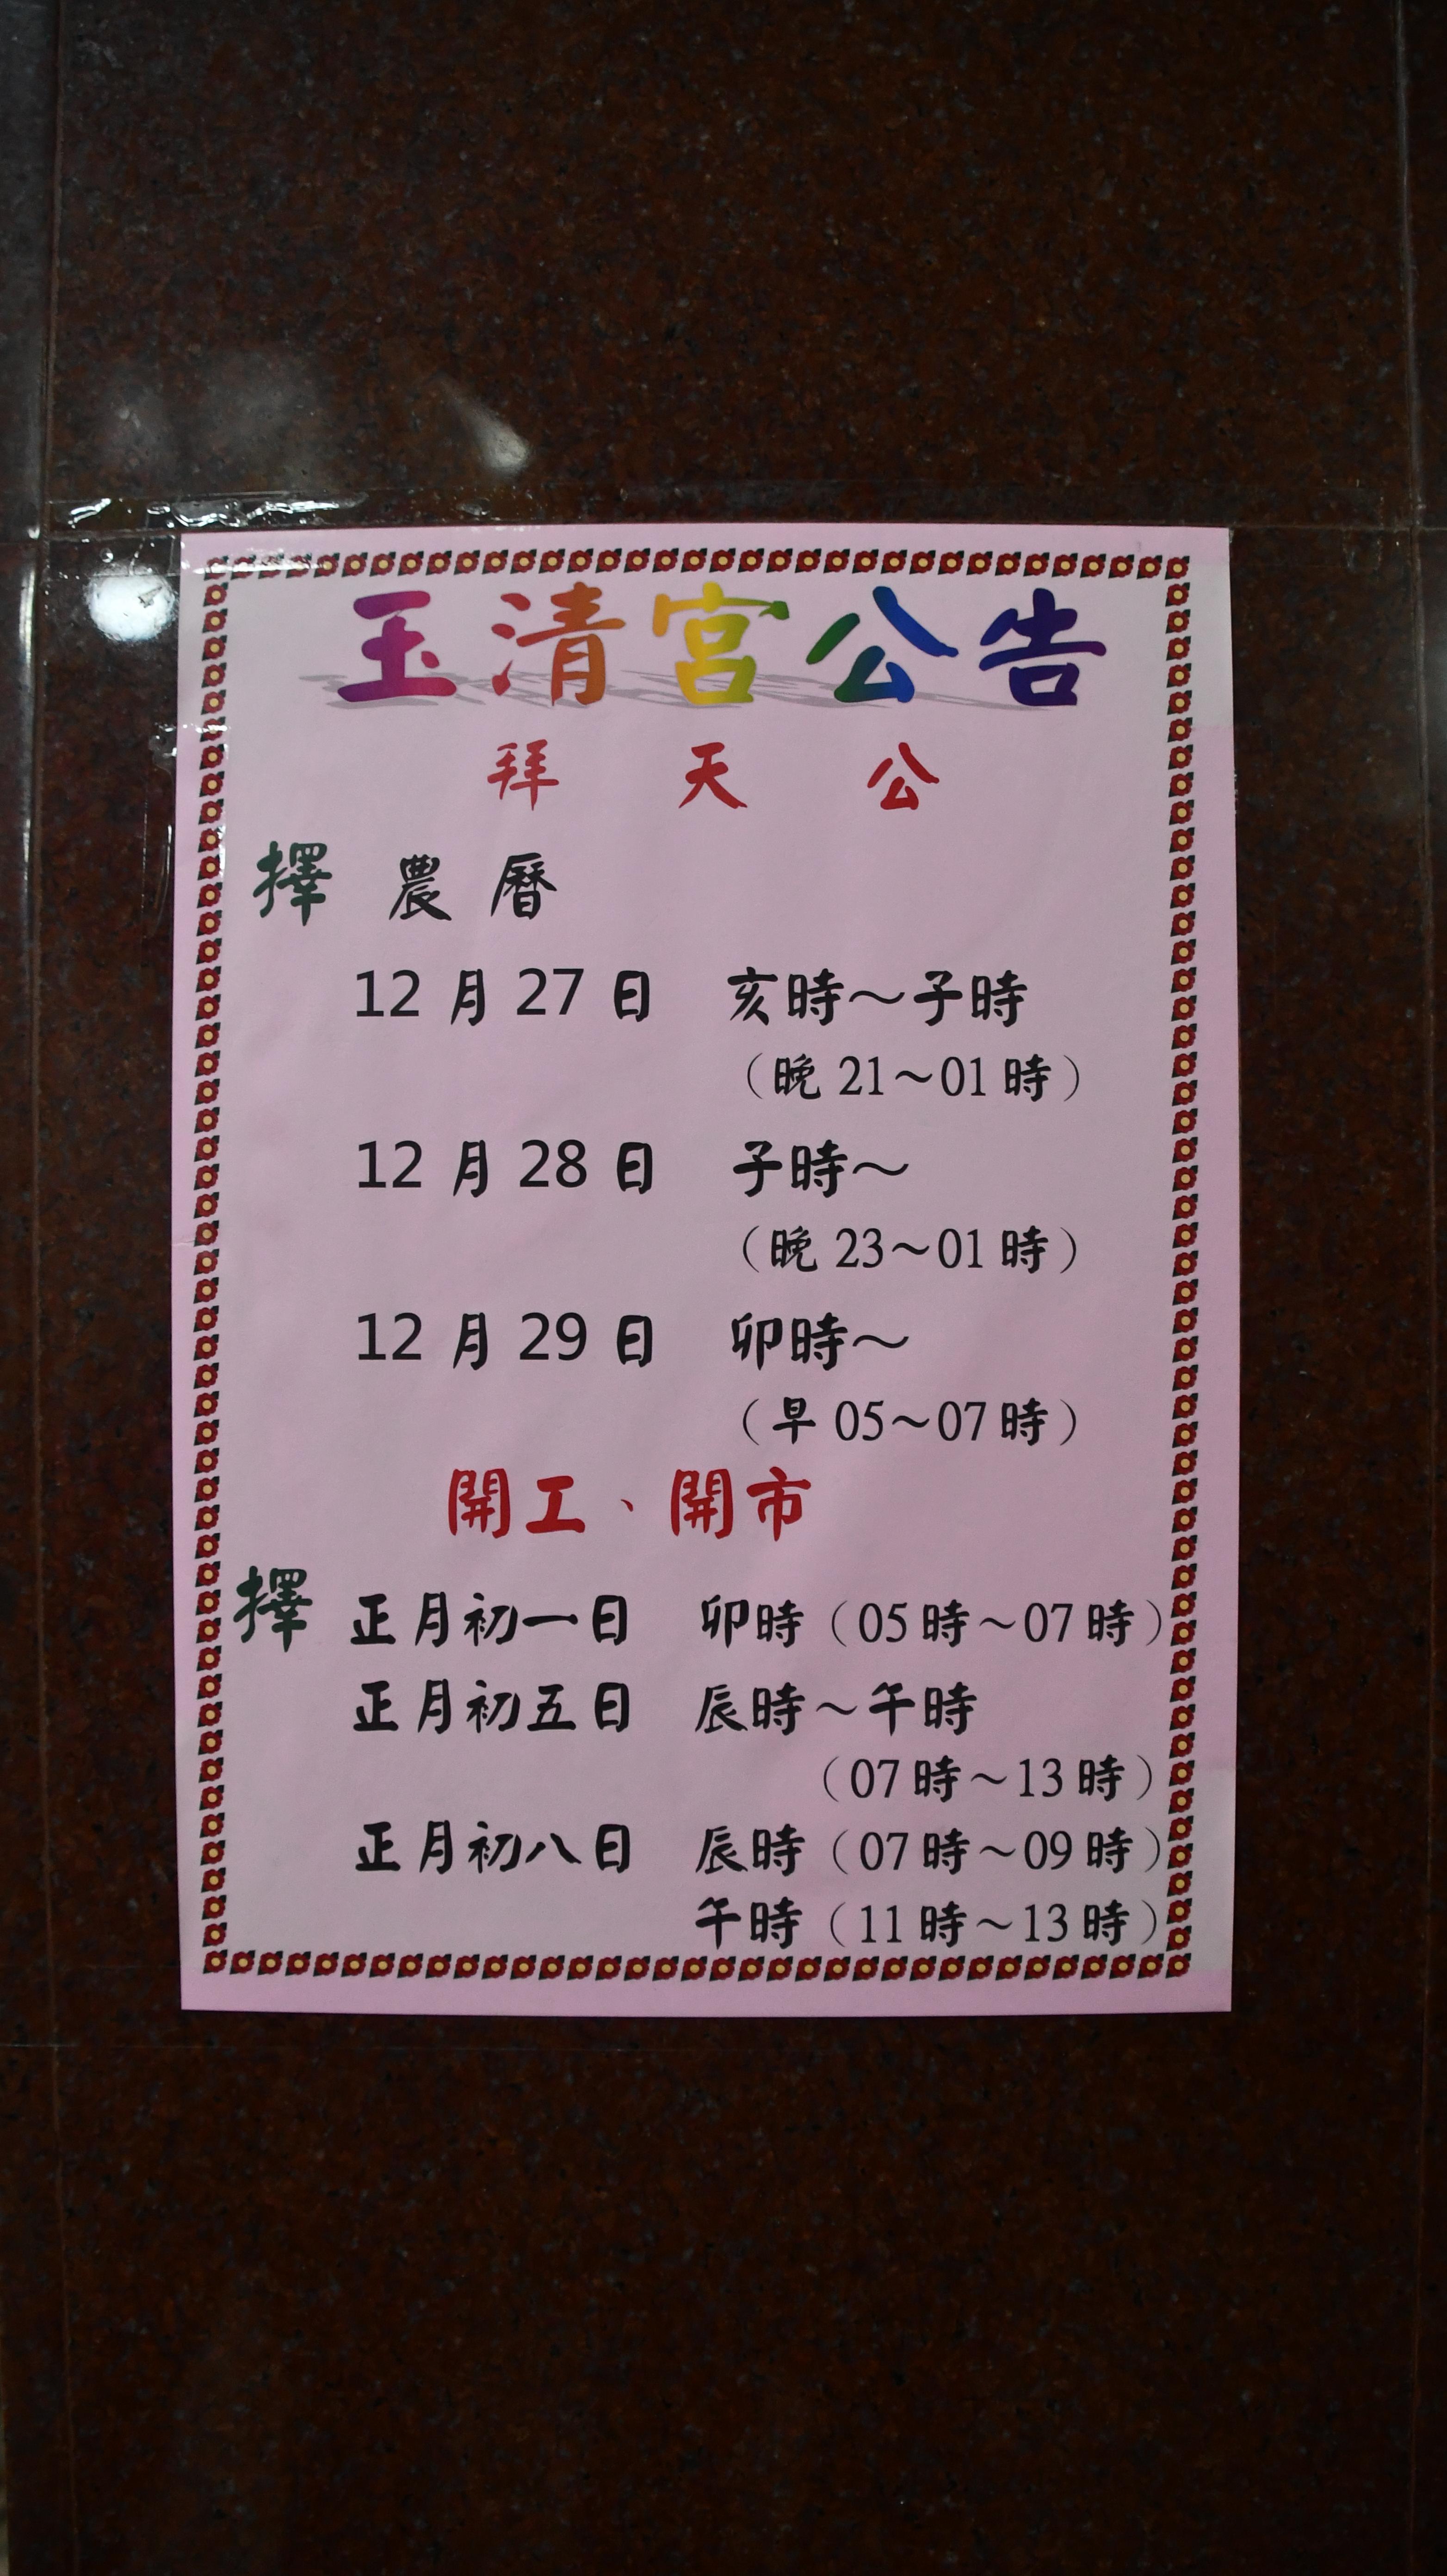 玉清宮公告
拜 天 公
擇 農 曆
12 月 27 日 亥時～子時
（晚 21～01 時）
12 月 28 日 子時～
（晚 23～01 時）
12 月 29 日 卯時～
（早 05～07 時）
開工、開市
擇 正月初一日 卯時（05 時～07 時）
正月初五日 辰時～午時
（07 時～13 時）
正月初八日 辰時（07 時～09 時）
午時（11 時～13 時）